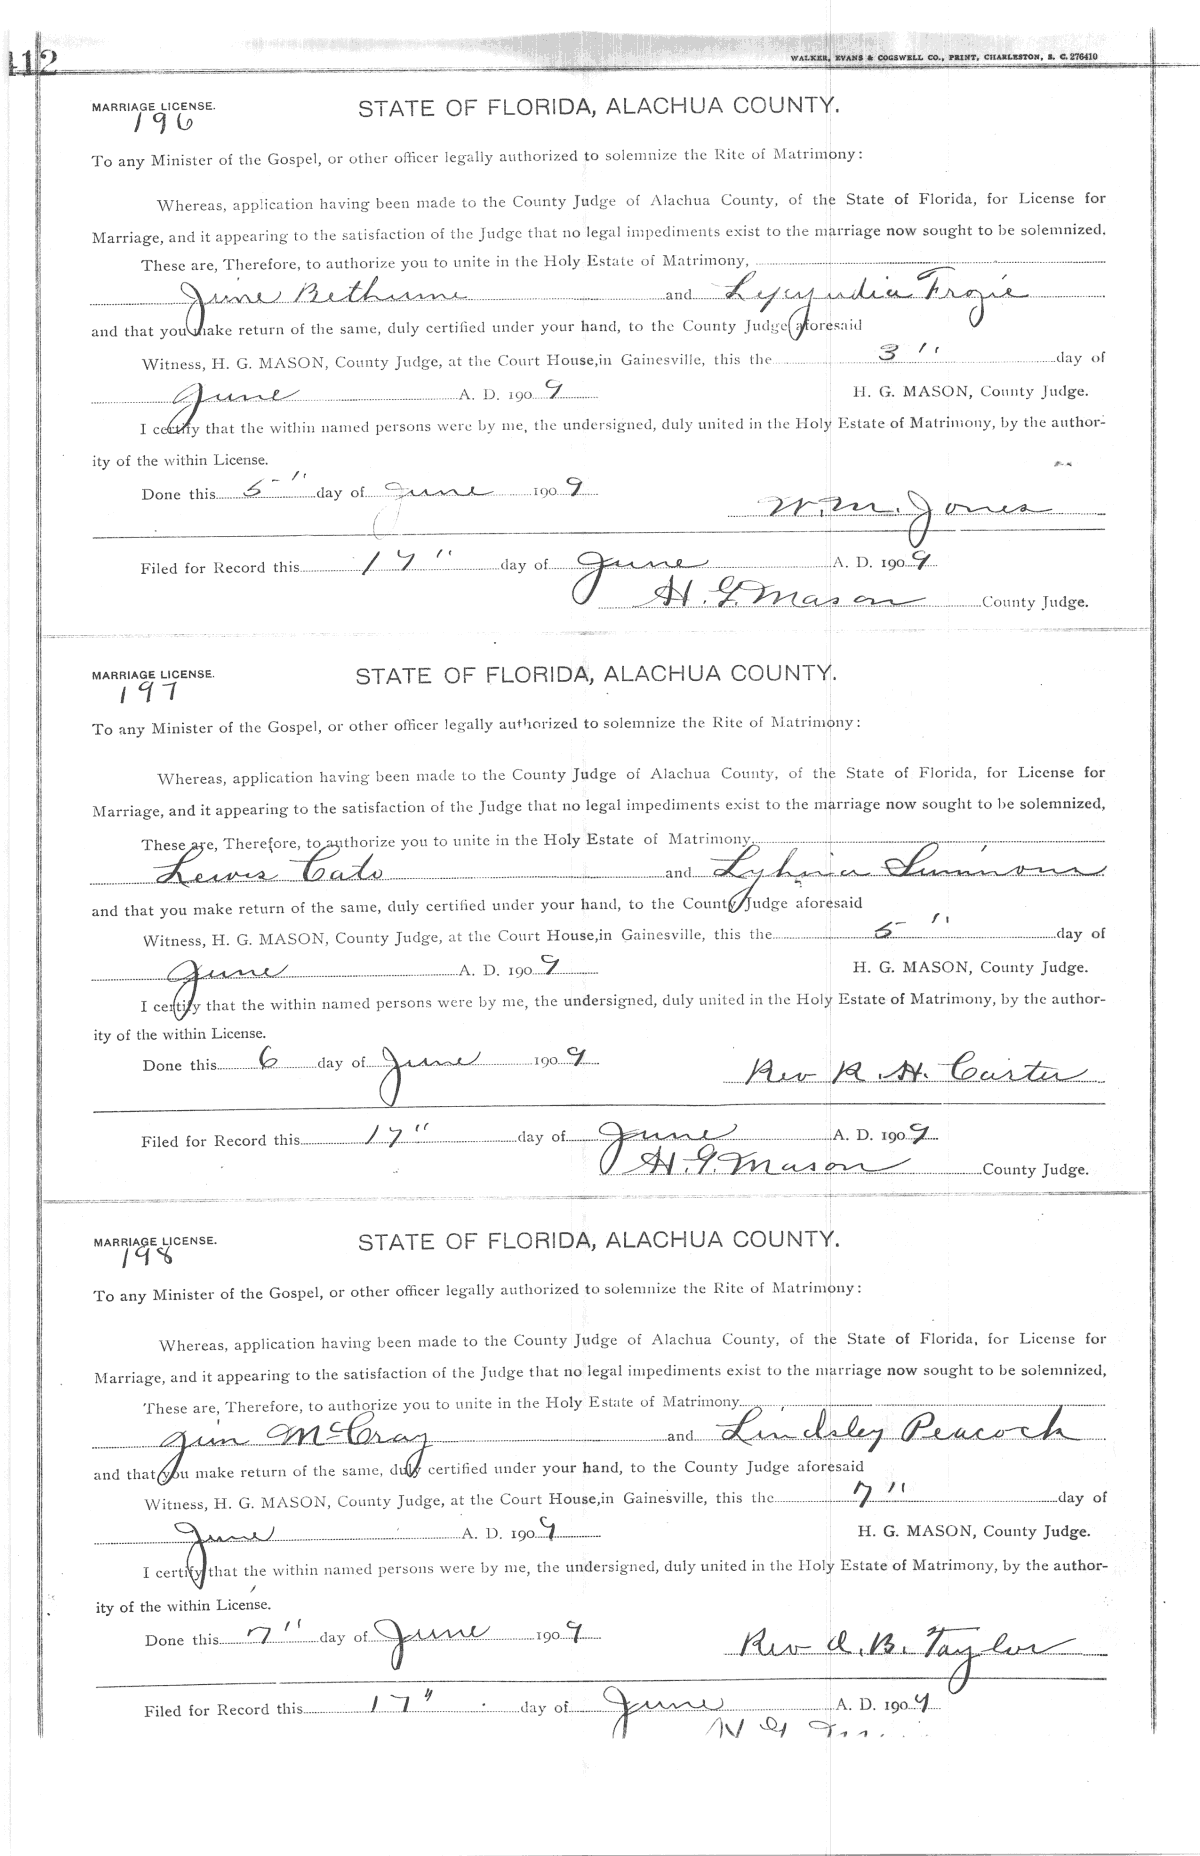 412
WALKER, EVANS & COGSWELL CO., PRINT, CHARLESTON, S. C. 276410
MARRIAGE LICENSE. STATE OF FLORIDA, ALACHUA COUNTY.
196
To any Minister of the Gospel, or other officer legally authorized to solemnize the Rite of Matrimony:
Whereas, application having been made to the County Judge of Alachua County, of the State of Florida, for License for
Marriage, and it appearing to the satisfaction of the Judge that no legal impediments exist to the marriage now sought to be solemnized.
These are, Therefore, to authorize you to unite in the Holy Estate of Matrimony,
June Bethune and
and that you make return of the same, duly certified under your hand, to the County Judge aforesaid
Witness, H. G. MASON, County Judge, at the Court House, in Gainesville, this the 3" day of
June A. D. 1909 H. G. MASON, County Judge.
I certify that the within named persons were by me, the undersigned, duly united in the Holy Estate of Matrimony, by the author-
ity of the within License.
Done this 5" day of June 1909
W. M. Jones
Filed for Record this 17" day of June A. D. 1909
H. G. Mason County Judge.
MARRIAGE LICENSE. STATE OF FLORIDA, ALACHUA COUNTY.
197
To any Minister of the Gospel, or other officer legally authorized to solemnize the Rite of Matrimony:
Whereas, application having been made to the County Judge of Alachua County, of the State of Florida, for License for
Marriage, and it appearing to the satisfaction of the Judge that no legal impediments exist to the marriage now sought to be solemnized,
These are, Therefore, to authorize you to unite in the Holy Estate of Matrimony,
Lewis Cato and Simmons
and that you make return of the same, duly certified under your hand, to the County Judge aforesaid
Witness, H. G. MASON, County Judge, at the Court House, in Gainesville, this the 5" day of
June A. D. 1909 H. G. MASON, County Judge.
I certify that the within named persons were by me, the undersigned, duly united in the Holy Estate of Matrimony, by the author-
ity of the within License.
Done this 6 day of June 1909
Rev R. H. Carter
Filed for Record this 17" day of June A. D. 1909
H. G. Mason County Judge.
MARRIAGE LICENSE. STATE OF FLORIDA, ALACHUA COUNTY.
198
To any Minister of the Gospel, or other officer legally authorized to solemnize the Rite of Matrimony:
Whereas, application having been made to the County Judge of Alachua County, of the State of Florida, for License for
Marriage, and it appearing to the satisfaction of the Judge that no legal impediments exist to the marriage now sought to be solemnized,
These are, Therefore, to authorize you to unite in the Holy Estate of Matrimony,
Jim McCray and Lindsley Peacock
and that you make return of the same, duly certified under your hand, to the County Judge aforesaid
Witness, H. G. MASON, County Judge, at the Court House, in Gainesville, this the 7" day of
June A. D. 1909 H. G. MASON, County Judge.
I certify that the within named persons were by me, the undersigned, duly united in the Holy Estate of Matrimony, by the author-
ity of the within License.
Done this 7" day of June 1909
Rev d. B. Taylor
Filed for Record this 17" day of June A. D. 1909
H G